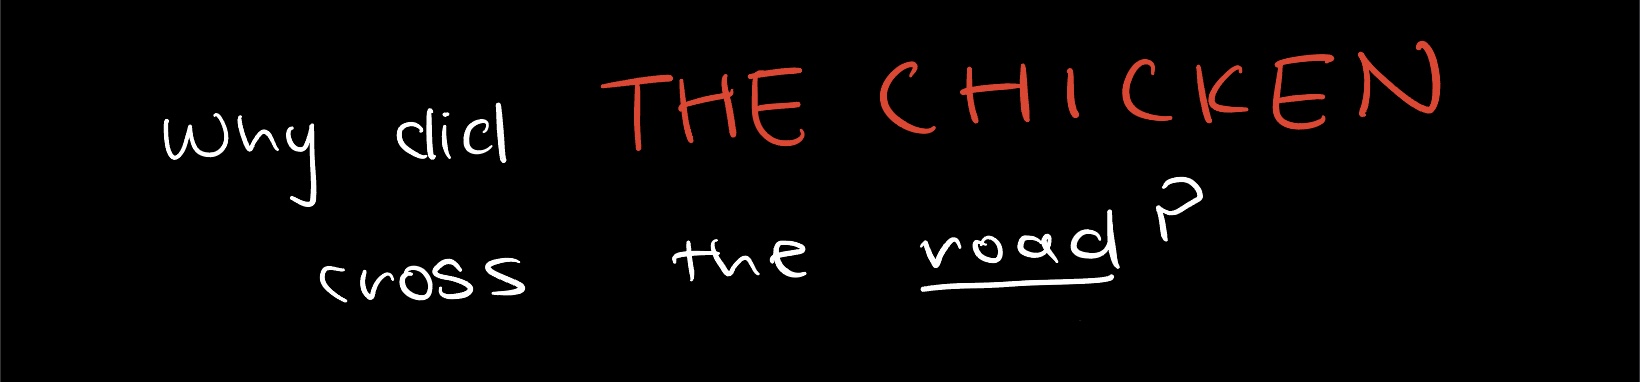 Why did THE CHICKEN
cross the road?